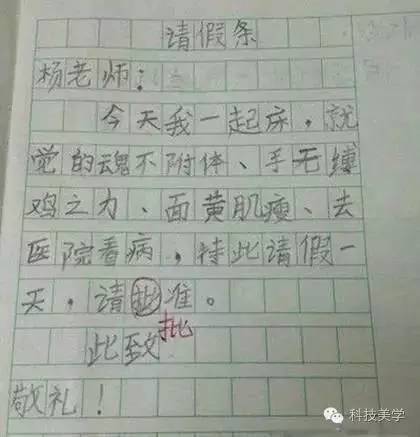 请假条
杨老师：
今天我一起床，就
觉的魂不附体、手无缚
鸡之力、面黄肌瘦、去
医院看病，特此请假一
天，请批准。
批
此致
敬礼！
科技美学